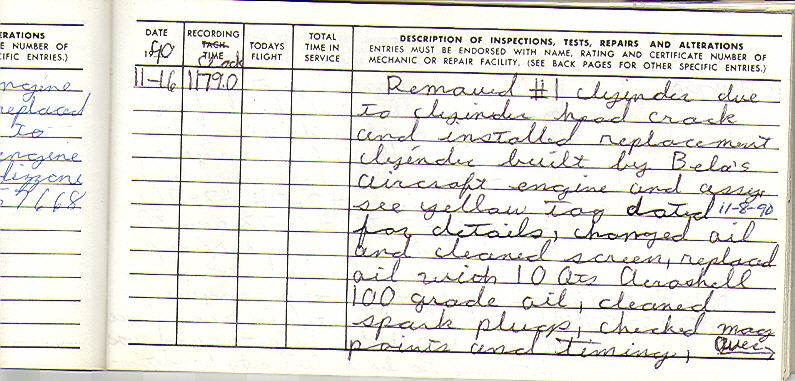 ERATIONS
E NUMBER OF
CIFIC ENTRIES.)
engine
replaced
to
engine
57668
DATE
1990
RECORDING
TACH
TIME
TODAYS
FLIGHT
TOTAL
TIME IN
SERVICE
DESCRIPTION OF INSPECTIONS, TESTS, REPAIRS AND ALTERATIONS
ENTRIES MUST BE ENDORSED WITH NAME, RATING AND CERTIFICATE NUMBER OF
MECHANIC OR REPAIR FACILITY. (SEE BACK PAGES FOR OTHER SPECIFIC ENTRIES.)
11-16 1179.0 Removed #1 clyinder due
to clyinder head crack
and installed replacement
clyinder built by Bela's
aircraft engine and assy.
see yellow tag dated 11-8-90
for details, changed oil
and cleaned screen, replaced
oil with 10 Qts Aeroshell
100 grade oil, cleaned
spark plugs, checked mag
points and timing, Over